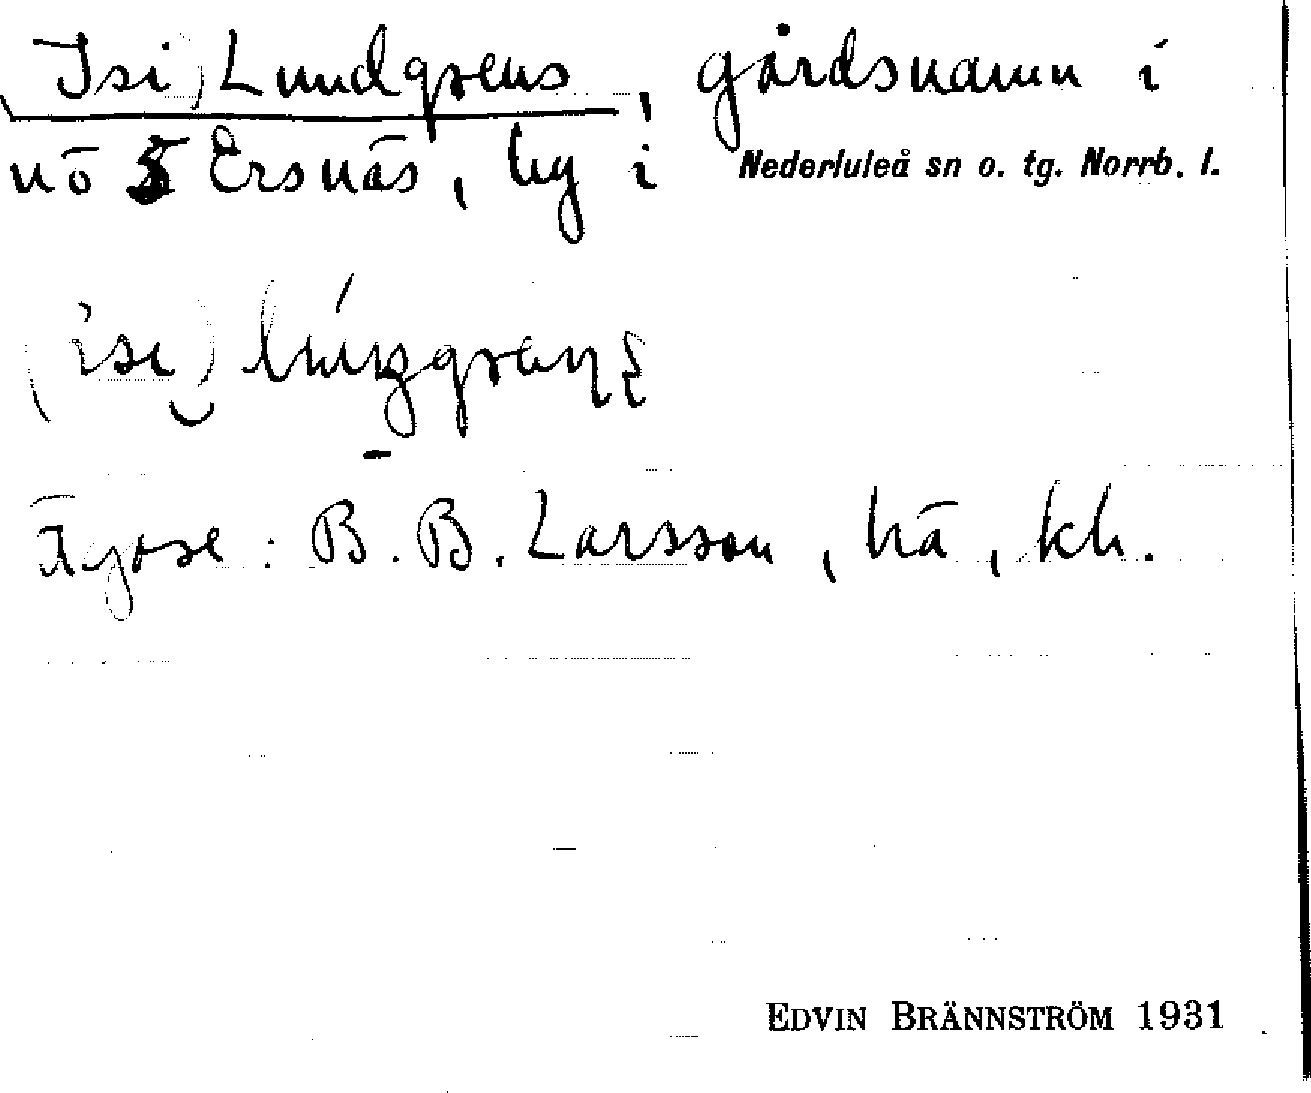 (Isi) Lundgrens, gårdsnamn i
nö 5 Ersnäs, by i Nederluleå sn o. tg. Norrb. l.
Ägare: B. B. Larsson, ha, kh.
EDVIN BRÄNNSTRÖM 1931